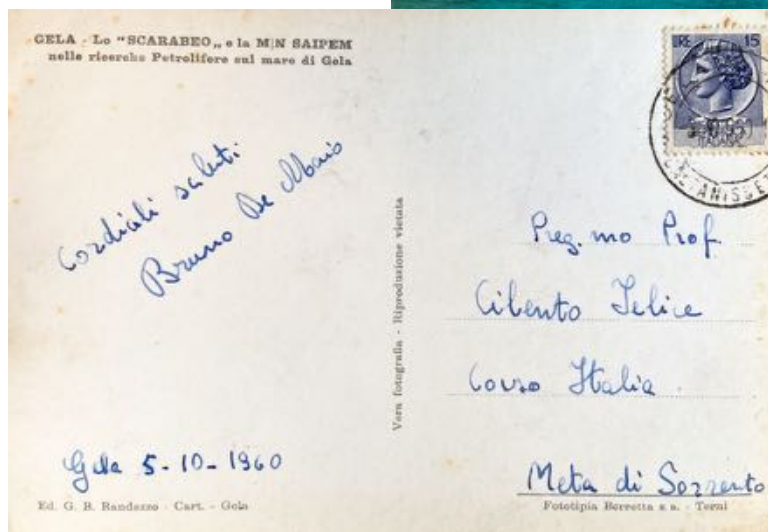 GELA - Lo "SCARABEO„ e la M|N SAIPEM
nelle ricerche Petrolifere sul mare di Gela
LIRE 15
ITALIANE
CALTANISSET
Cordiali saluti
Bruno De Maio
Gela 5-10-1960
Ed. G. B. Randazzo - Cart. - Gela
Vera fotografia - Riproduzione vietata
Preg.mo Prof.
Cilento Felice
Corso Italia
Meta di Sorrento
Fototipia Berretta s.a. - Terni